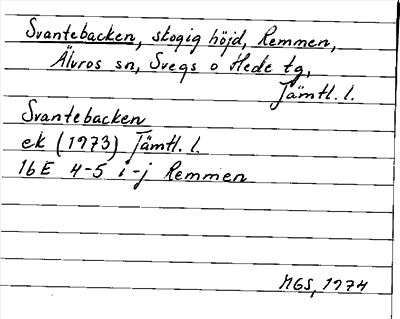 Svantebacken, skogig höjd, Remmen,
Älvros sn, Svegs o Hede tg,
Jämtl. l.
Svantebacken
ek (1973) Jämtl. l.
16E 4-5 i-j Remmen
MGS, 1974